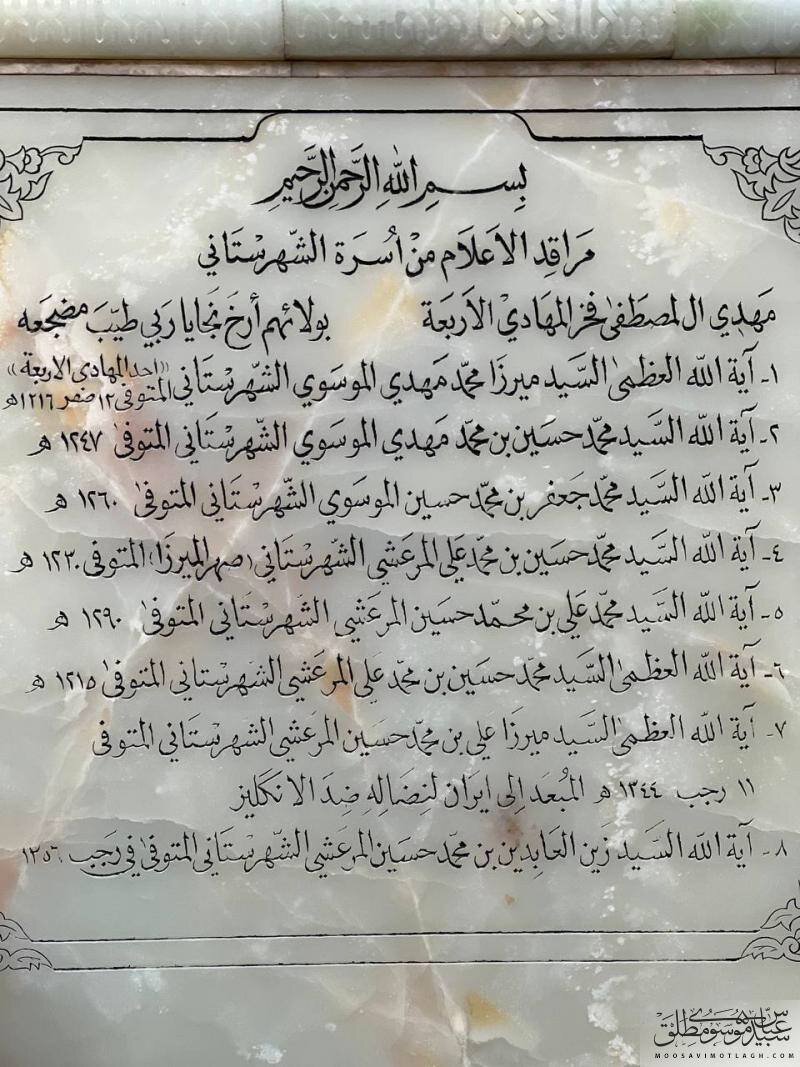 بِسْمِ اللهِ الرَّحْمنِ الرَّحِيمِ
مَرَاقِد الاَعلَام مِنْ اُسرَة الشّهرسْتَاني
مَهدِي ال لمصطَفىٰ فخر المهَاديْ الاَربَعة بولائهم أرخ نجايا ربي طيّبَ مضجعَه
١- آيَة اللّه العظمىٰ السَّيد ميرزَا محمّد مَهدي الموسَوي الشّهرسْتَاني «احد المهادي الاربعة» المتوفى ١٢ صفر ١٢١٦ ه
٢- آيَة اللّه السَّيد محمّد حسَين بن محمّد مَهدي الموسَوي الشّهرسْتَاني المتوفىٰ ١٢٤٧ ه
٣- آيَة اللّه السَّيد محمّد جَعفر بن محمّد حسين الموسَوي الشّهرسْتَاني المتوفىٰ ١٢٦٠ ه
٤- آيَة اللّه السَّيد محمّد حسَين بن محمّد علي المرعَشي الشّهرسْتَاني (صهر الميرزَا) المتوفى ١٢٣٠ ه
٥- آيَة اللّه السَّيد محمّد علي بن محمّد حسَين المرعَشي الشهرسْتَاني المتوفىٰ ١٢٩٠ ه
٦- آيَة اللّه العظمىٰ السَّيد محمّد حسَين بن محمّد علي المرعَشي الشهرستاني المتوفىٰ ١٢١٥ ه
٧- آيَة اللّه العظمىٰ السَّيد ميرزَا علي بن محمّد حسَين المرعَشي الشهرسْتَاني المتوفى
١١ رجب ١٣٤٤ ه المُبعَد اِلى ايرَان لنِضَالِهِ ضِدَ الانكليز
٨- آيَة اللّه السَّيد زَين العَابِدين بن محمّد حسَين المرعَشي الشّهرسْتَاني المتوفىٰ في رجَب ١٣٥٦
سید عباس موسوی مطلق
MOOSAVIMOTLAGH.COM